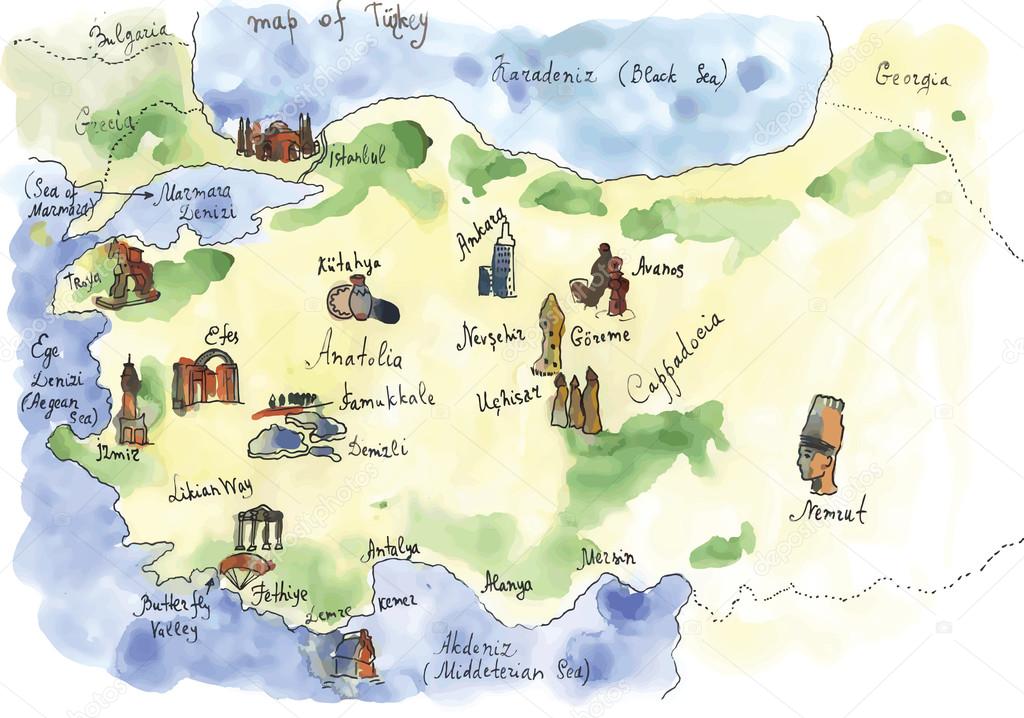 map of Türkey
Bulgaria
Karadeniz (Black Sea)
Georgia
Grecia
Istanbul
(Sea of
Marmara)
Marmara
Denizi
Ankara
Troya
Kütahya
Avanos
Efes
Nevşehir
Göreme
Ege
Denizi
(Aegean
Sea)
Anatolia
Cappadocia
Uçhisar
Pamukkale
İzmir
Denizli
Likian Way
Nemrut
Antalya
Mersin
Alanya
Fethiye
Butterfly
Valley
Demre
Kemer
Akdeniz
(Middeterian Sea)
depositphotos